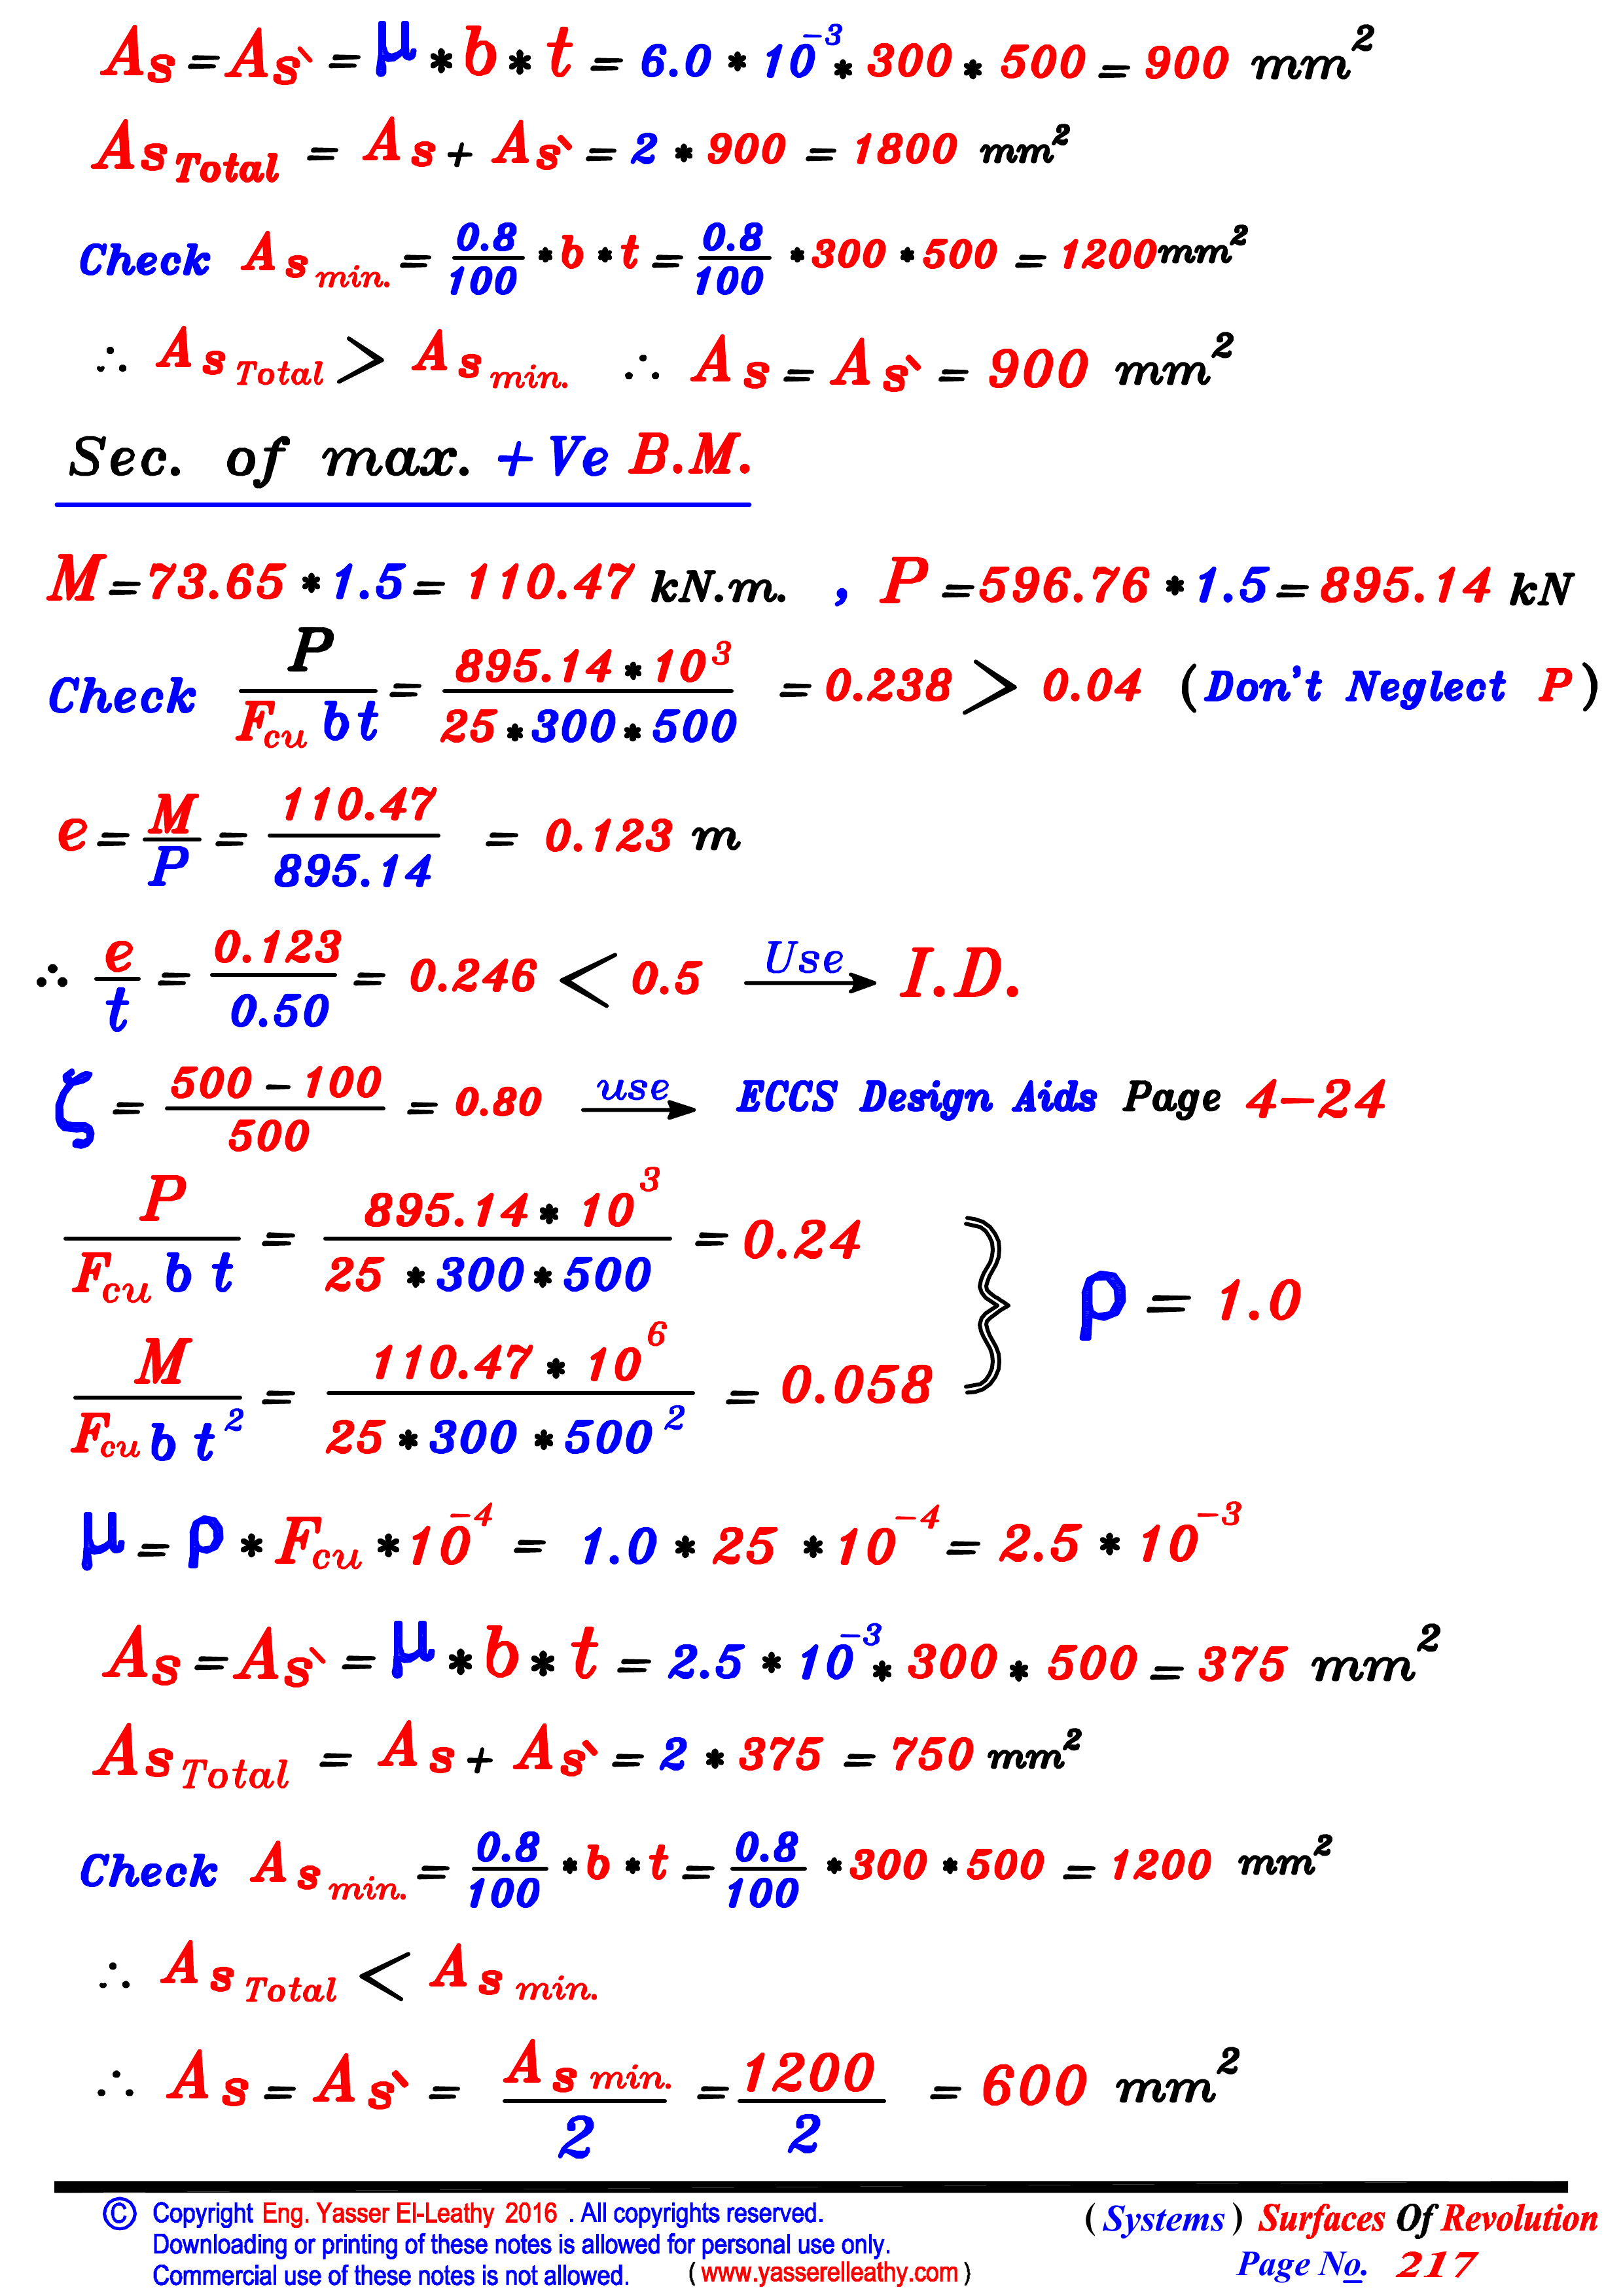 As = As` = μ * b * t = 6.0 * 10⁻³ * 300 * 500 = 900 mm²
As Total = As + As` = 2 * 900 = 1800 mm²
Check As min. = 0.8/100 * b * t = 0.8/100 * 300 * 500 = 1200 mm²
∴ As Total > As min. ∴ As = As` = 900 mm²
Sec. of max. +Ve B.M.
M = 73.65 * 1.5 = 110.47 kN.m. , P = 596.76 * 1.5 = 895.14 kN
Check P / Fcu b t = 895.14 * 10³ / 25 * 300 * 500 = 0.238 > 0.04 (Don't Neglect P)
e = M/P = 110.47 / 895.14 = 0.123 m
∴ e/t = 0.123 / 0.50 = 0.246 < 0.5 Use → I.D.
ζ = 500 - 100 / 500 = 0.80 use → ECCS Design Aids Page 4-24
P / Fcu b t = 895.14 * 10³ / 25 * 300 * 500 = 0.24
ρ = 1.0
M / Fcu b t² = 110.47 * 10⁶ / 25 * 300 * 500² = 0.058
μ = ρ * Fcu * 10⁻⁴ = 1.0 * 25 * 10⁻⁴ = 2.5 * 10⁻³
As = As` = μ * b * t = 2.5 * 10⁻³ * 300 * 500 = 375 mm²
As Total = As + As` = 2 * 375 = 750 mm²
Check As min. = 0.8/100 * b * t = 0.8/100 * 300 * 500 = 1200 mm²
∴ As Total < As min.
∴ As = As` = As min. / 2 = 1200 / 2 = 600 mm²
© Copyright Eng. Yasser El-Leathy 2016 . All copyrights reserved.
Downloading or printing of these notes is allowed for personal use only.
Commercial use of these notes is not allowed. ( www.yasserelleathy.com )
( Systems ) Surfaces Of Revolution
Page No. 217